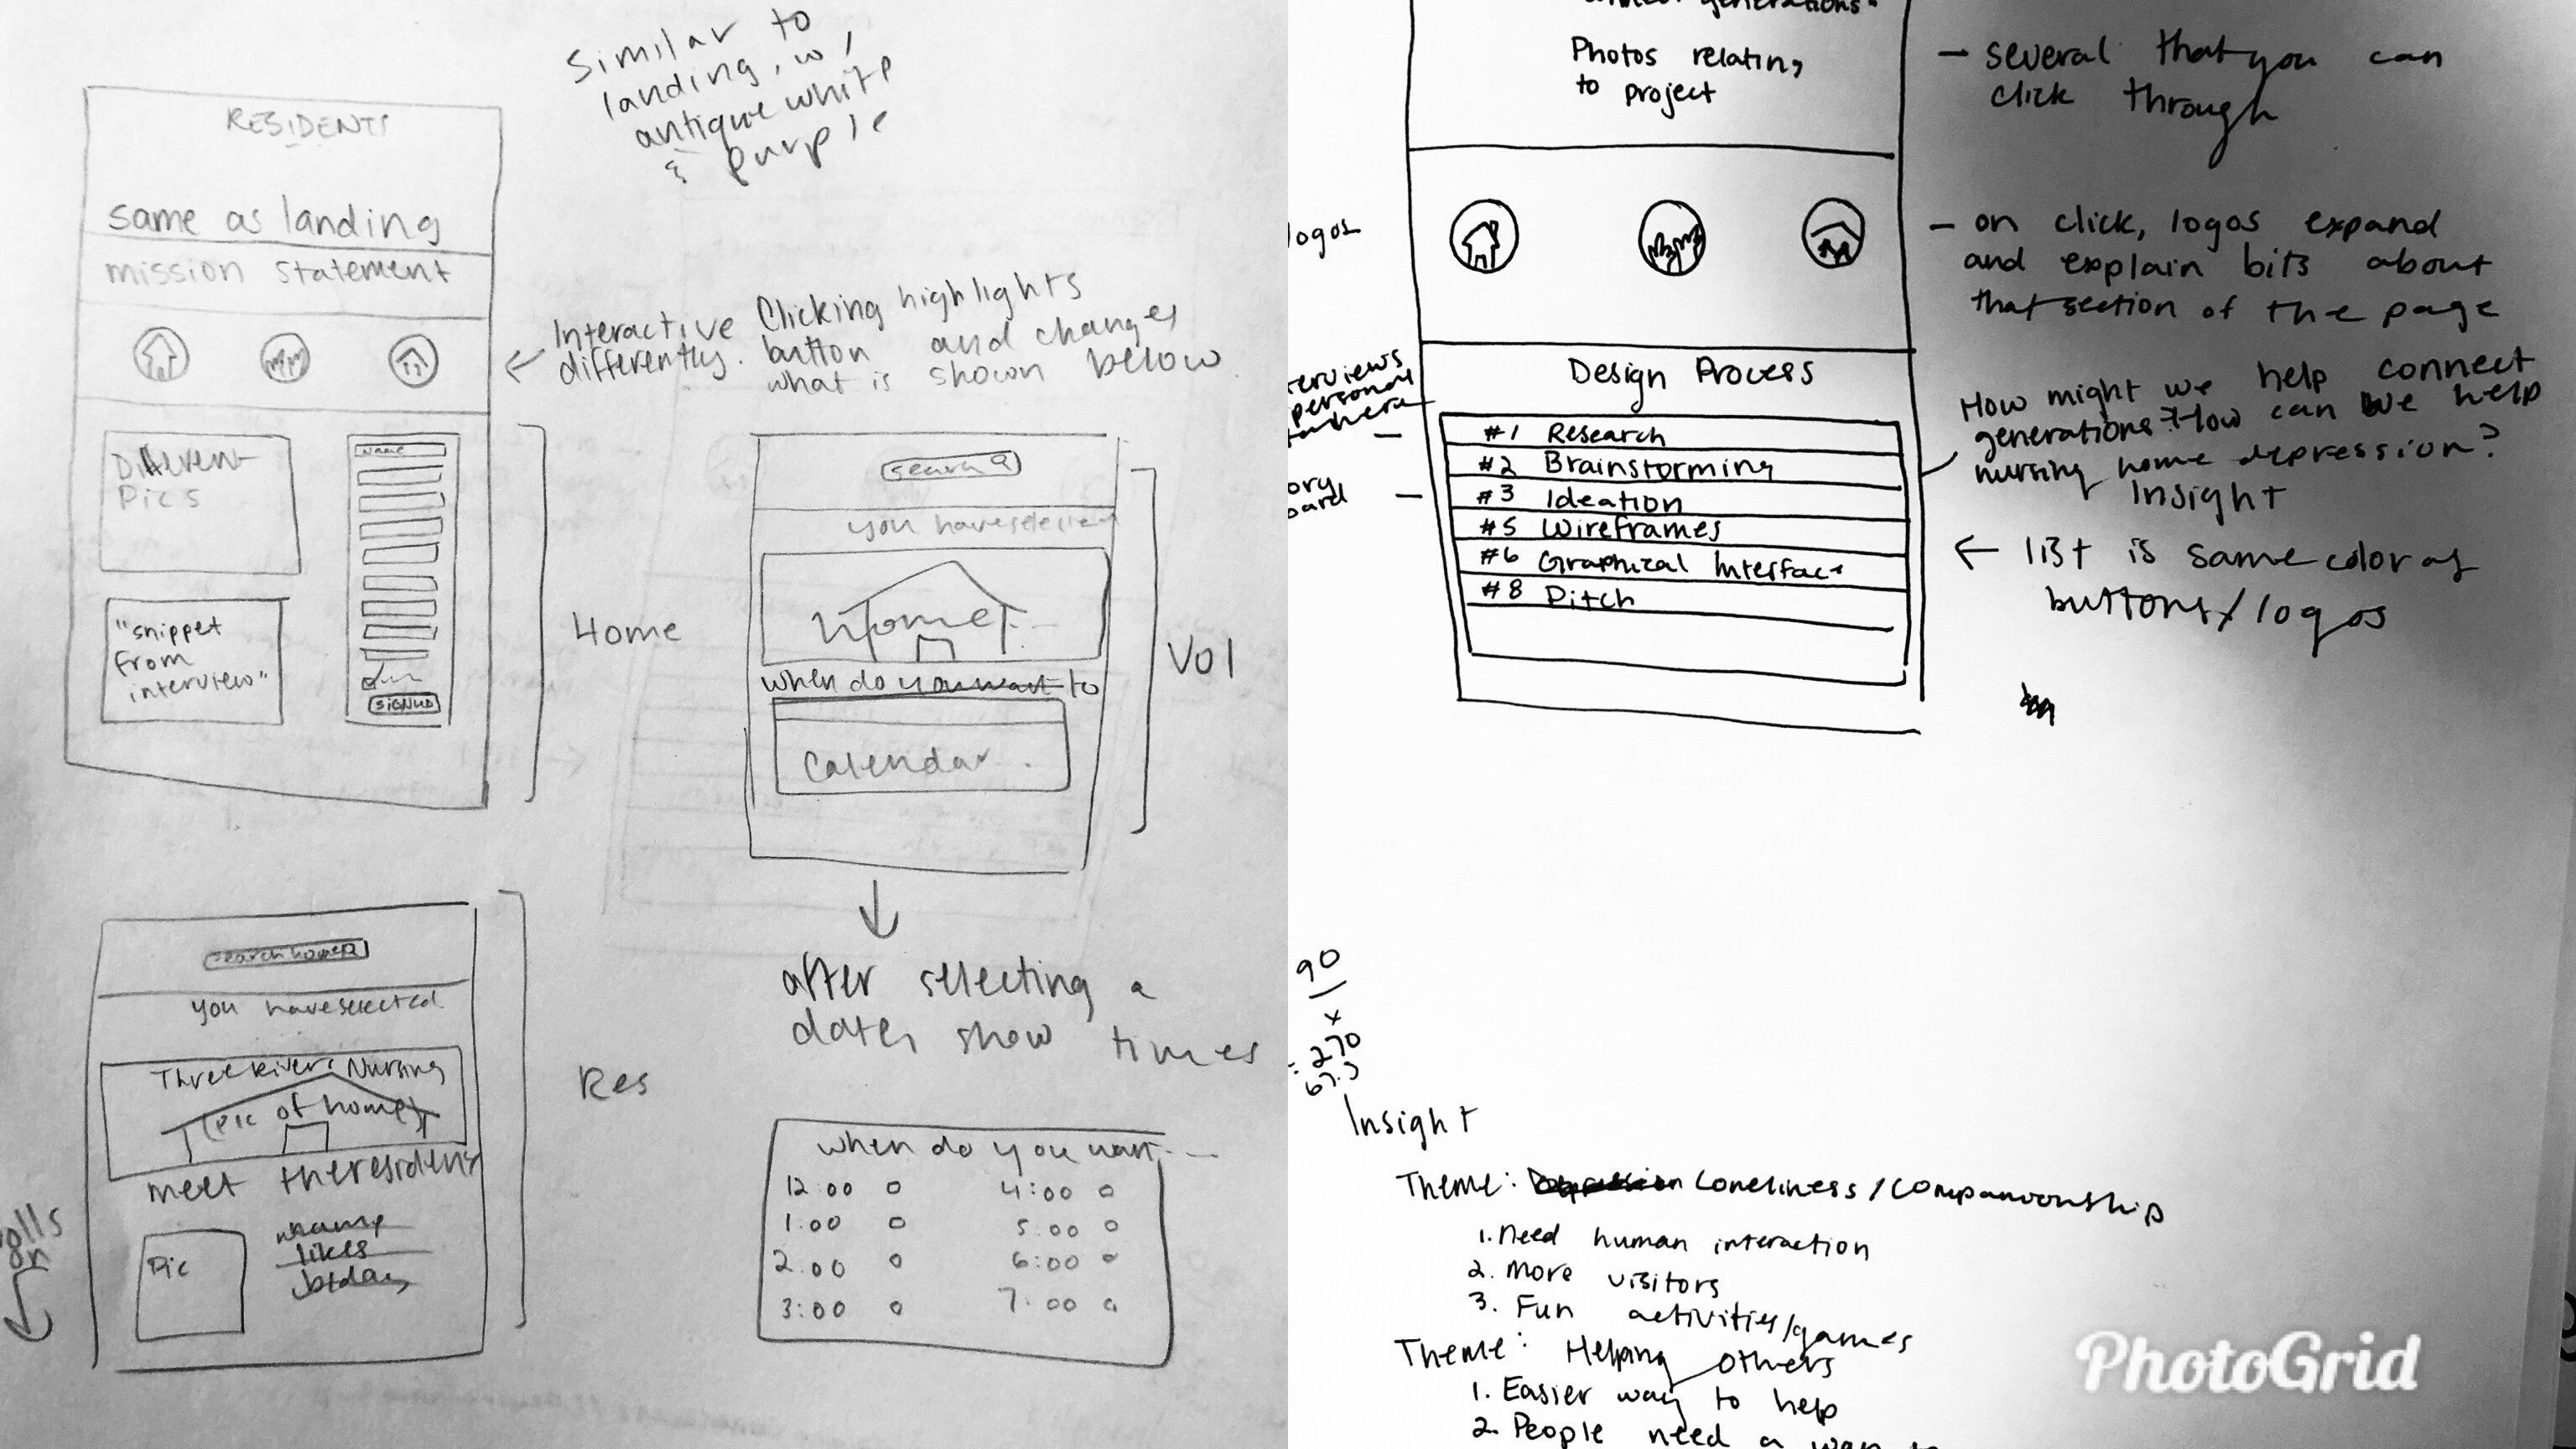 Similar to
landing, w/
antique white
& purple
RESIDENTS
same as landing
mission statement
Interactive
differently.
Clicking highlights
button and changes
what is shown below.
Different
Pics
"snippet
from
interview"
Name
SIGNUP
Home
search
you have selected
Home
when do you want to
Calendar
Vol
after selecting a
date, show times
search home
you have selected
Three Rivers Nursing
(pic of home)
meet the residents
Pic
name
likes
bday
Res
when do you want
12:00 4:00
1:00 5:00
2:00 6:00
3:00 7:00
generations"
Photos relating
to project
- several that you can
click through
logos
- on click, logos expand
and explain bits about
that section of the page
Design Process
#1 Research
#2 Brainstorming
#3 Ideation
#5 Wireframes
#6 Graphical Interface
#8 Pitch
How might we help connect
generations? How can we help
nursing home depression?
Insight
← list is same color as
buttons/logos
90
x
270
67.5
Insight
Theme: Loneliness/companionship
1. Need human interaction
2. More visitors
3. Fun activities/games
Theme: Helping others
1. Easier way to help
2. People need a way to
PhotoGrid